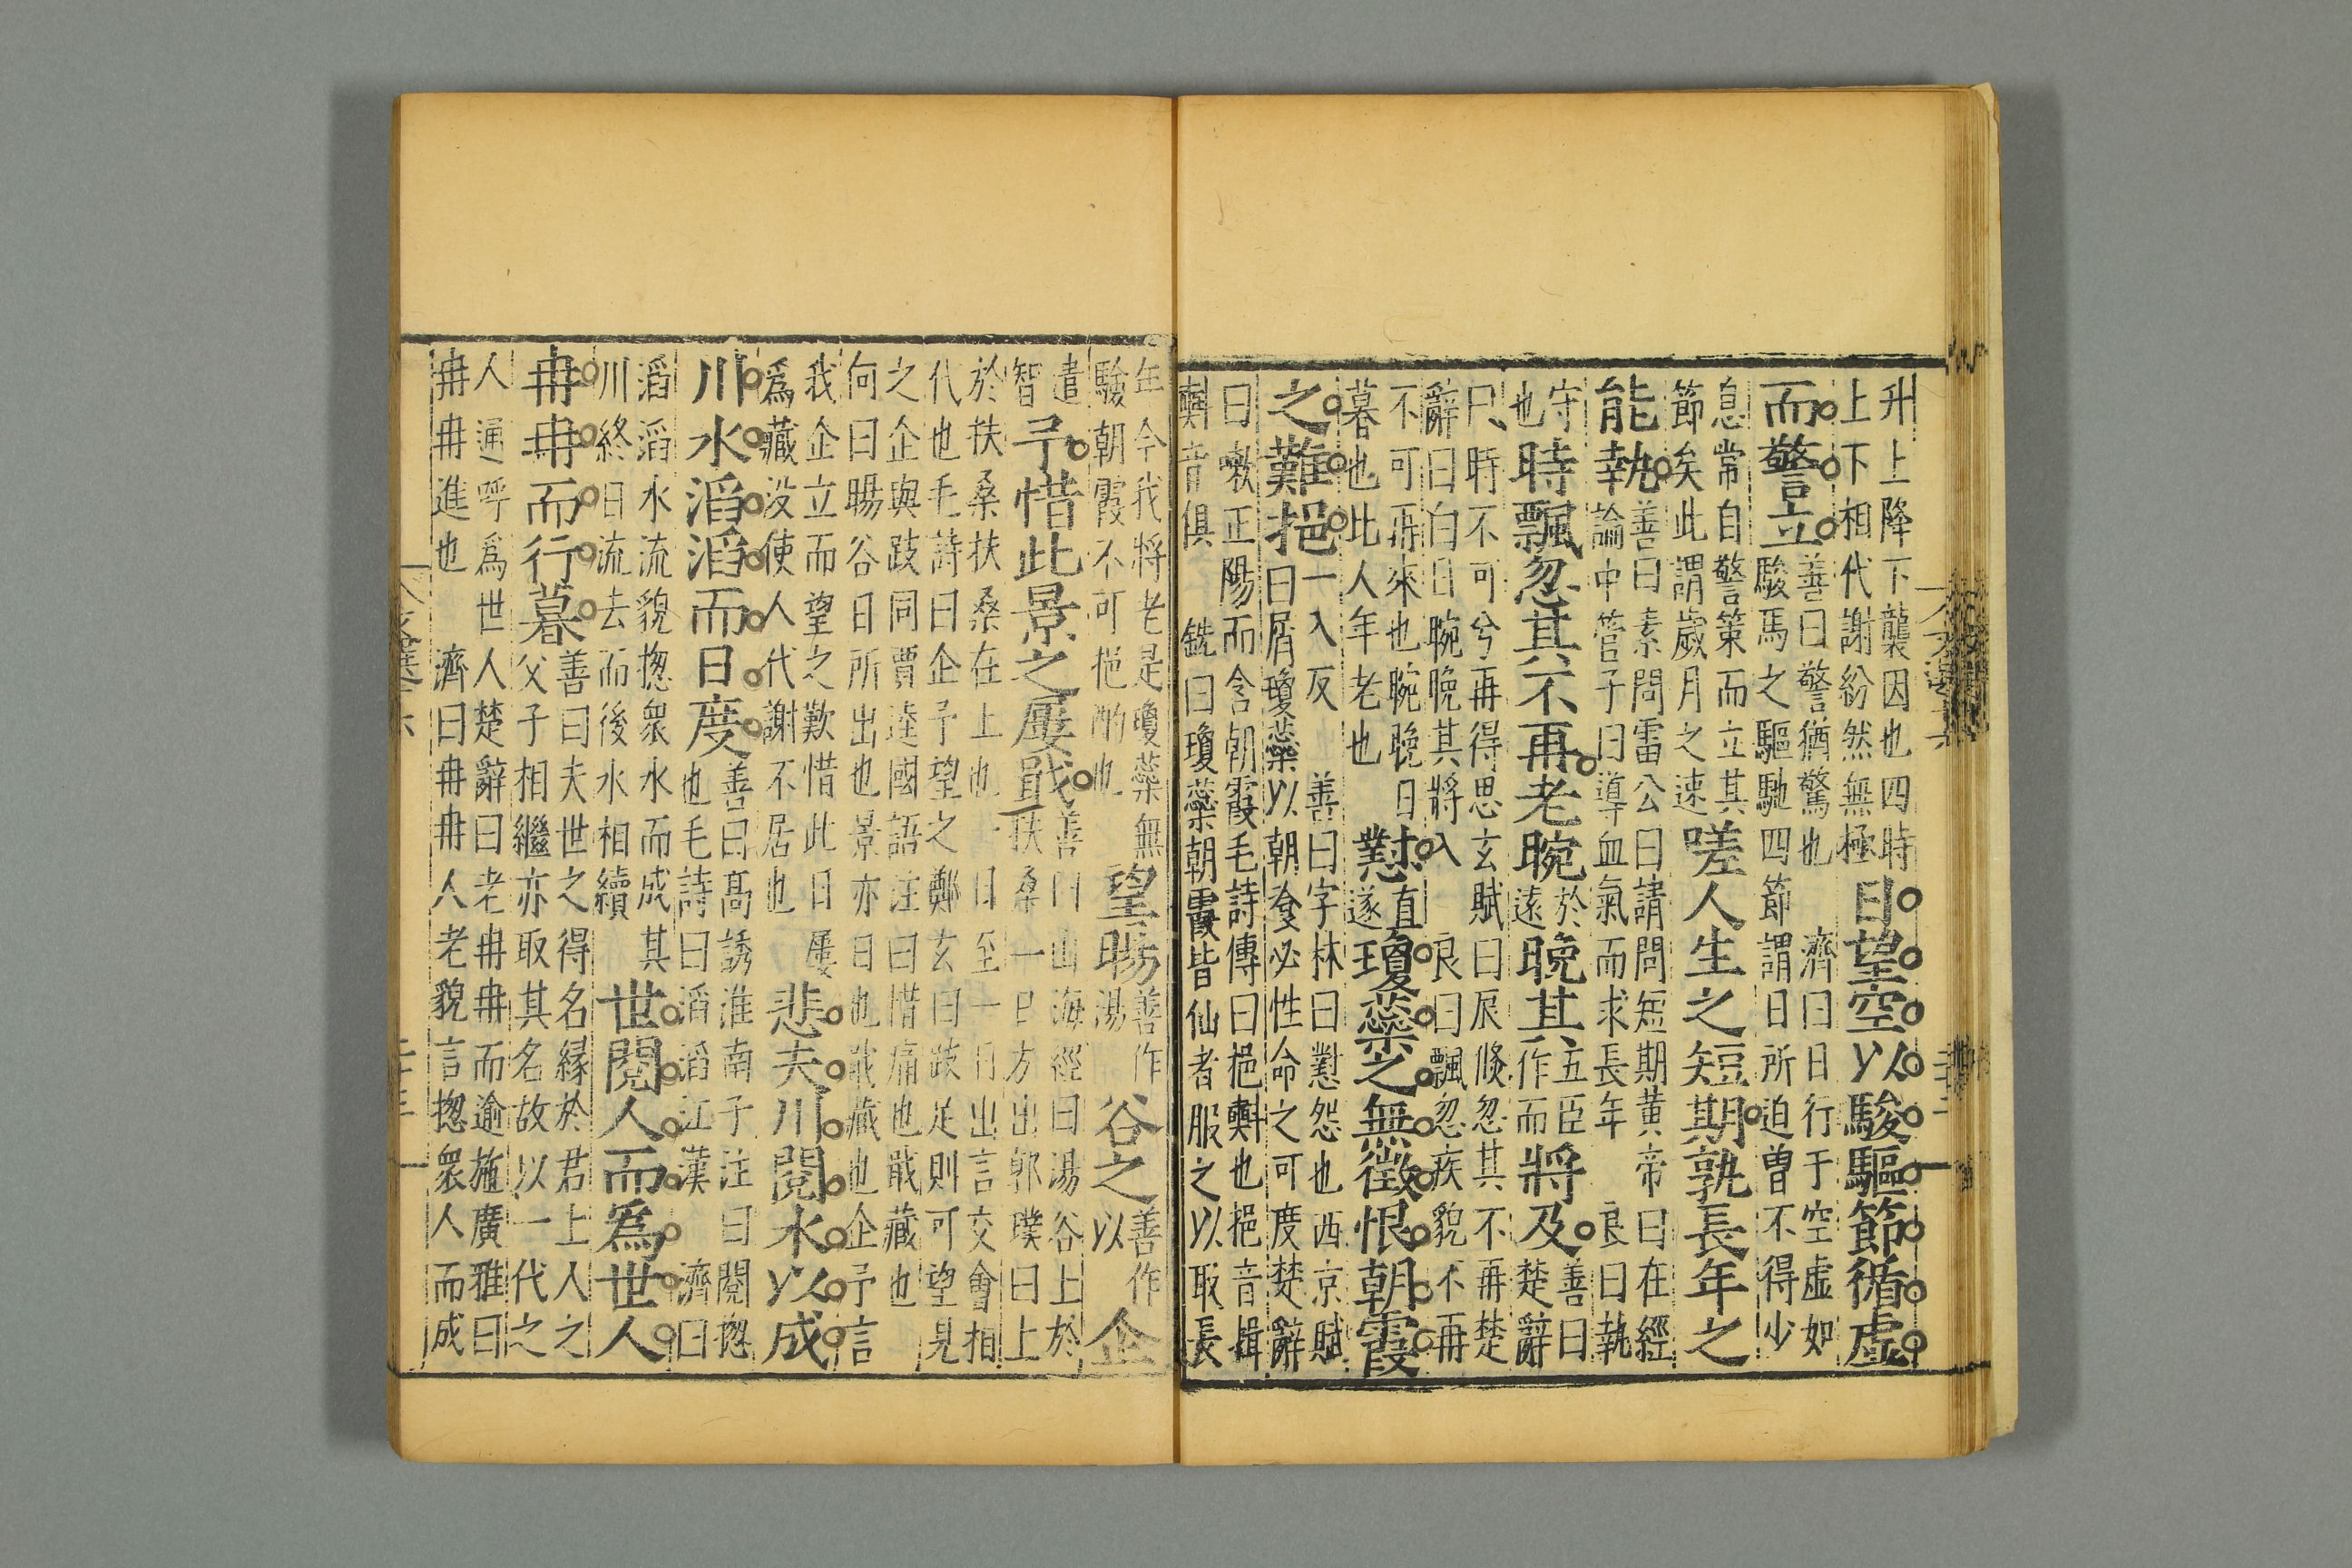 升上降下襲因也四時
上下相代謝紛然無極
日望空以駿驅節循虛
而警立
善曰警猶驚也　濟曰日行于空虛如
駿馬之驅馳四節謂日所迫曾不得少
息常自警策而立其
節矣此謂歲月之速
嗟人生之短期孰長年之
能執
善曰素問雷公曰請問短期黃帝曰在經
論中管子曰導血氣而求長年　良曰執
守
也
時飄忽其不再老晼
於
遠
晚其
五臣
作而
將及
善曰
楚辭
曰時不可兮再得思玄賦曰辰倐忽其不再楚
辭曰白日晼晚其將入　良曰飄忽疾貌不再
不可再來也晼晚日
暮也此人年老也
懟
直
遂
瓊蘂之無徵恨朝霞
之難挹
一入反　善曰字林曰懟怨也西京賦
曰屑瓊蘂以朝飱必性命之可度楚辭
曰漱正陽而含朝霞毛詩傳曰挹㪺也挹音揖
㪺音俱　銑曰瓊蘂朝霞皆仙者服之以取長
年今我將老是瓊蘂無
驗朝霞不可挹酌也
望暘
善作
湯
谷之
善作
以
企
遣
智
予惜此景之屢戢
善曰山海經曰湯谷上於
扶桑一日方出郭璞曰上
於扶桑扶桑在上也一日至一日出言交會相
代也毛詩曰企予望之鄭玄曰跂足則可望見
之企與跂同賈逵國語注曰惜痛也戢藏也
向曰暘谷日所出也景亦日也戢藏也企予言
我企立而望之歎惜此日屢
爲藏没使人代謝不居也
悲夫川閱水以成
川水滔滔而日度
善曰髙誘淮南子注曰閱揔
也毛詩曰滔滔江漢　濟曰
滔滔水流貌揔衆水而成其
川終日流去而後水相續
世閱人而爲世人
冉冉而行暮
善曰夫世之得名縁於君上人之
父子相繼亦取其名故以一代之
人通呼爲世人楚辭曰老冉冉而逾施廣雅曰
冉冉進也　濟曰冉冉人老貌言揔衆人而成